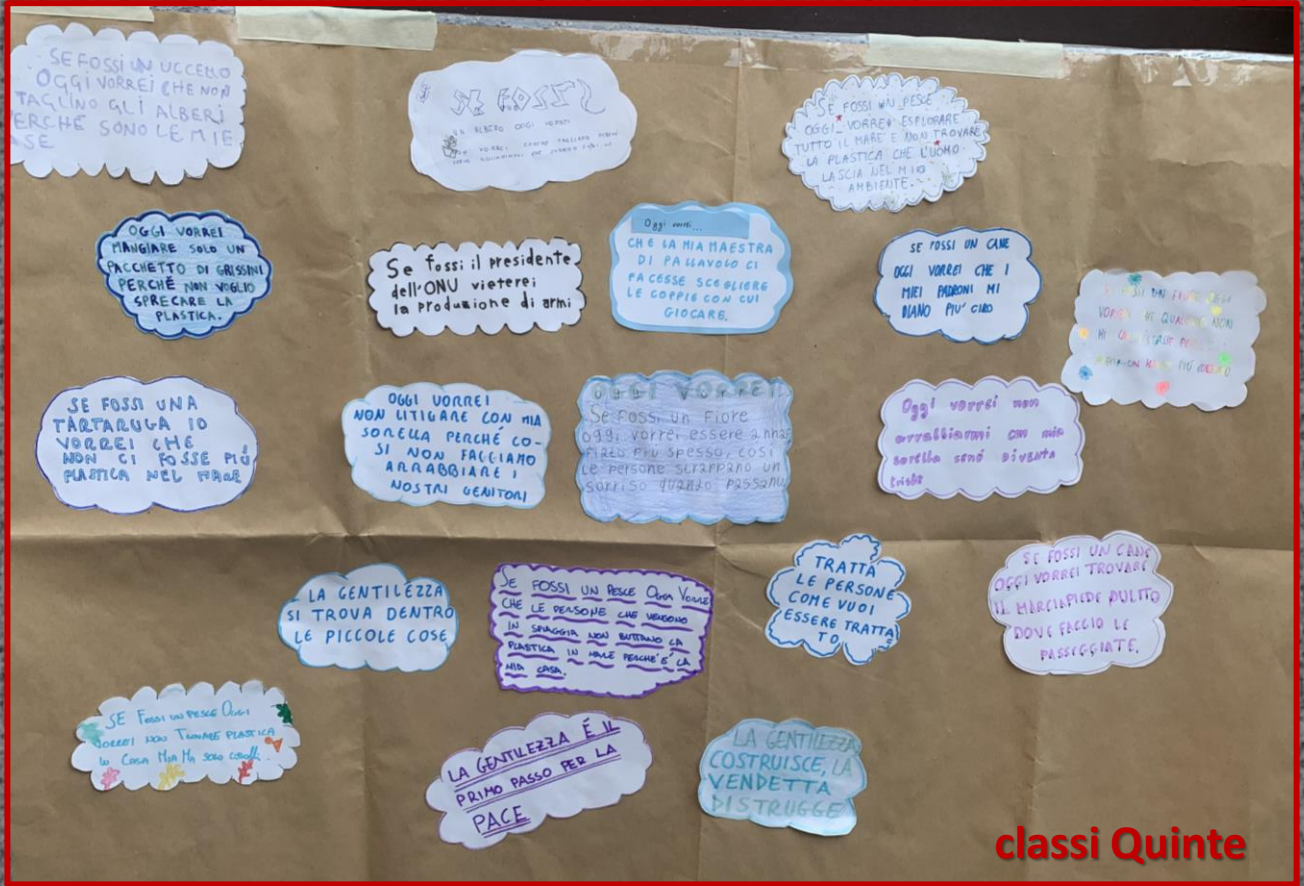 SE FOSSI UN UCCELLO
OGGI VORREI CHE NON
TAGLINO GLI ALBERI
PERCHÉ SONO LE MIE
SE
SE FOSSI
UN ALBERO OGGI VORREI
VORREI ESSERE TAGLIATO
SE FOSSI UN PESCE
OGGI VORREI ESPLORARE
TUTTO IL MARE E NON TROVARE
LA PLASTICA CHE L'UOMO
LASCIA NEL MIO
AMBIENTE.
OGGI VORREI
MANGIARE SOLO UN
PACCHETTO DI GRISSINI
PERCHÉ NON VOGLIO
SPRECARE LA
PLASTICA.
Se fossi il presidente
dell'ONU vieterei
la produzione di armi
Oggi vorrei...
CHE LA MIA MAESTRA
DI PALLAVOLO CI
FACESSE SCEGLIERE
LE COPPIE CON CUI
GIOCARE.
SE FOSSI UN CANE
OGGI VORREI CHE I
MIEI PADRONI MI
DIANO PIU' CIBO
SE FOSSI UN FIORE OGGI
VORREI CHE QUALCUNO NON
MI
PIÙ
SE FOSSI UNA
TARTARUGA IO
VORREI CHE
NON CI FOSSE PIÚ
PLASTICA NEL MARE
OGGI VORREI
NON LITIGARE CON MIA
SORELLA PERCHÉ CO-
SI NON FACCIAMO
ARRABBIARE I
NOSTRI GENITORI
OGGI VORREI
Se fossi un fiore
oggi vorrei essere annaf
fiato più spesso, così
le persone strappano un
sorriso quando passano
Oggi vorrei non
arrabbiarmi con mia
sorella senó diventa
triste
LA GENTILEZZA
SI TROVA DENTRO
LE PICCOLE COSE
SE FOSSI UN PESCE OGGI VORREI
CHE LE PERSONE CHE VENGONO
IN SPIAGGIA NON BUTTANO LA
PLASTICA IN MARE PERCHE' E' LA
MIA CASA.
TRATTA
LE PERSONE
COME VUOI
ESSERE TRATTA
TO
SE FOSSI UN CANE
OGGI VORREI TROVARE
IL MARCIAPIEDE PULITO
DOVE FACCIO LE
PASSEGGIATE.
SE FOSSI UN PESCE OGGI
VORREI NON TROVARE PLASTICA
IN CASA MIA MA SOLO CORALLI.
LA GENTILEZZA É IL
PRIMO PASSO PER LA
PACE
LA GENTILEZZA
COSTRUISCE, LA
VENDETTA
DISTRUGGE
classi Quinte